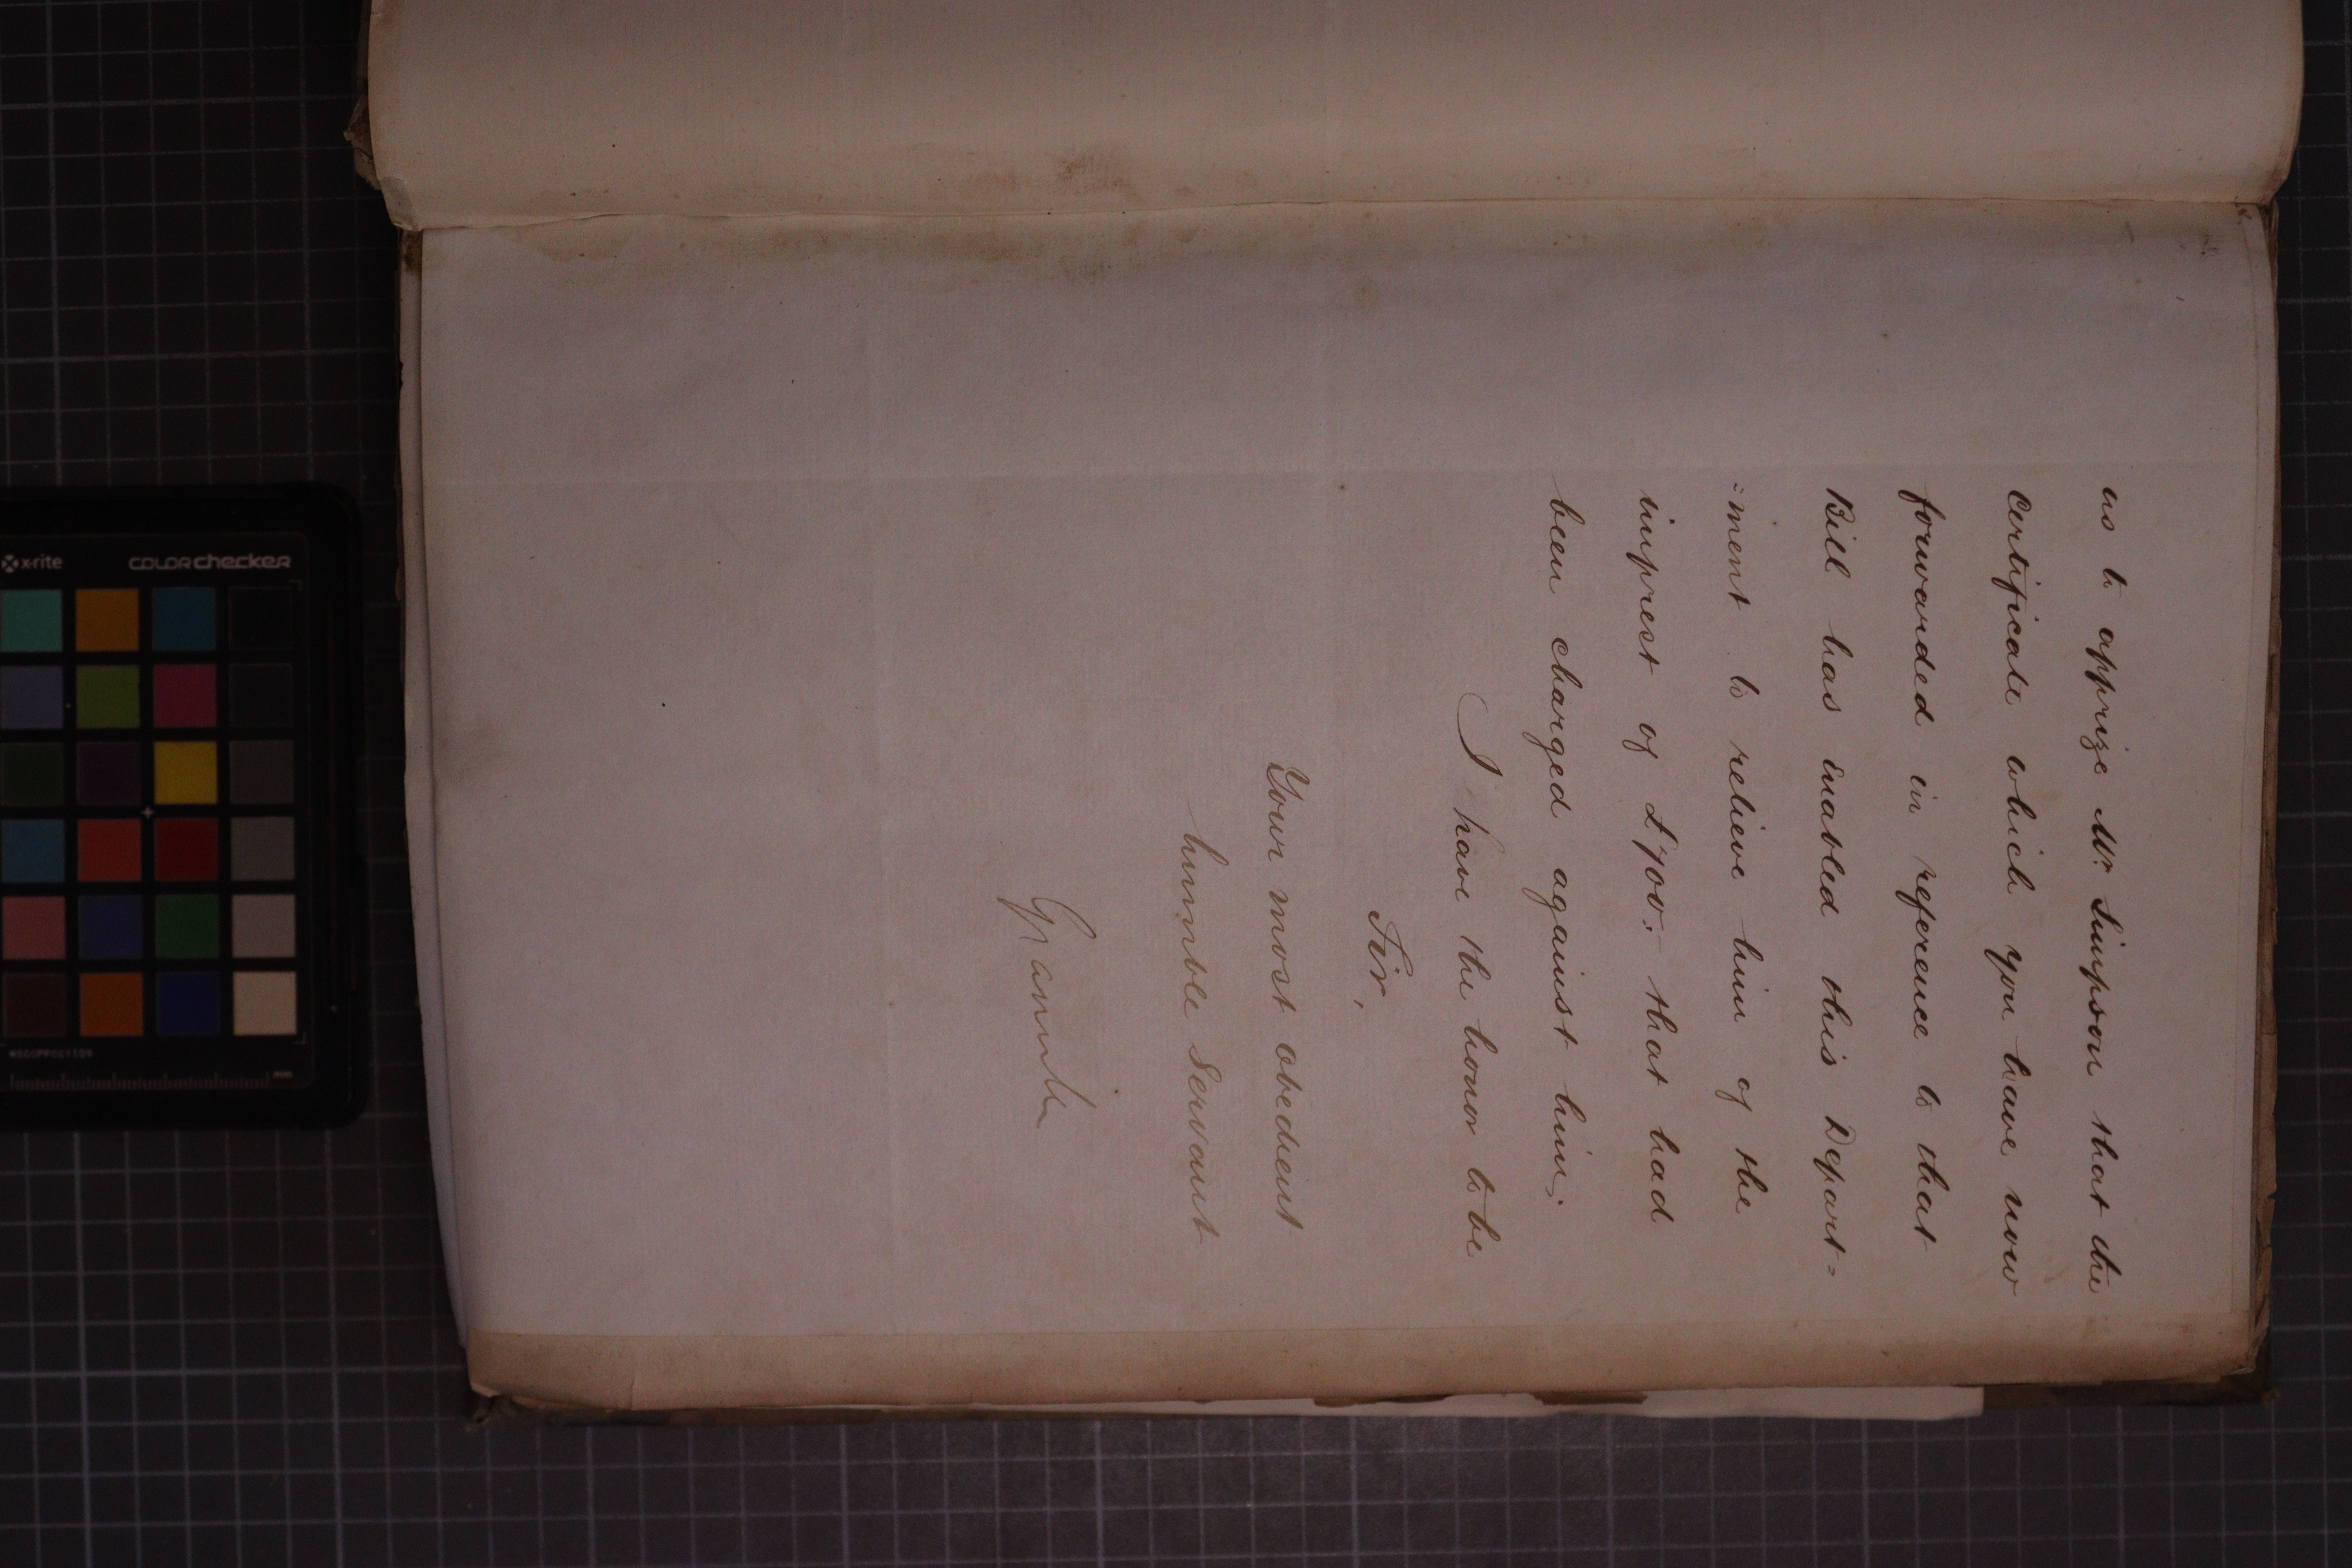 us to apprize Mr. Simpson that the
Certificate which you have now
forwarded in reference to that
Bill has enabled this Depart=
=ment to relieve him of the
imprest of £700:- that had
been charged against him;
I have the honor to be
Sir,
Your most obedient
humble Servant
x-rite
colorchecker
mm